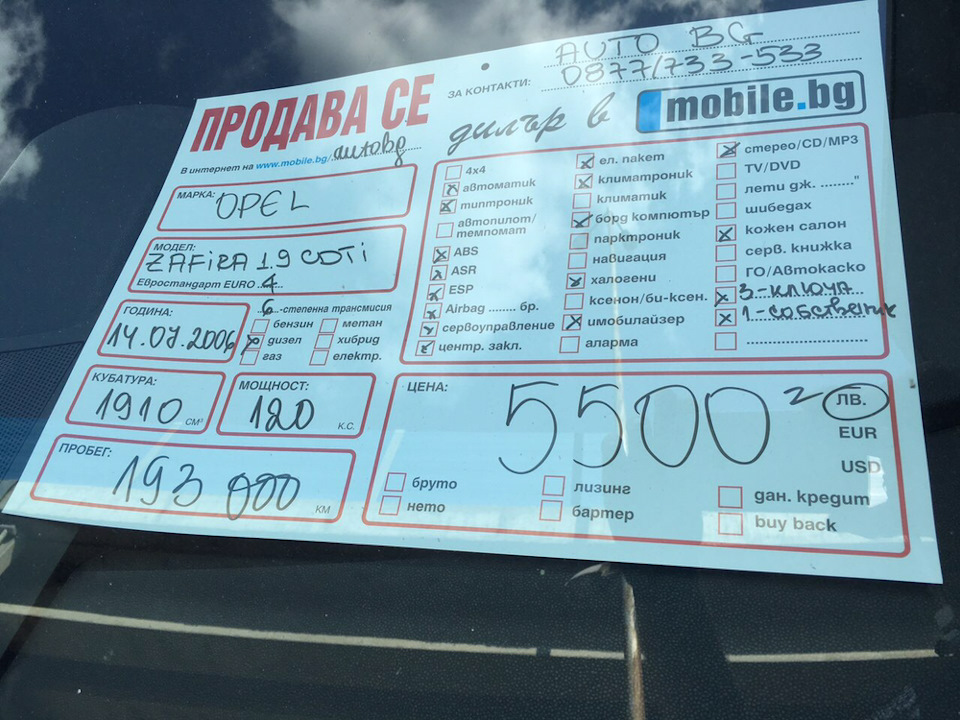 AUTO BG
ПРОДАВА СЕ
ЗА КОНТАКТИ: 0877/733-533
дилър в mobile.bg
В интернет на www.mobile.bg/
МАРКА: OPEL
МОДЕЛ:
ZAFIRA 1.9 CDTI
Евростандарт EURO 4
6 -степенна трансмисия
ГОДИНА:
14.07.2006
бензин метан
дизел хибрид
газ електр.
КУБАТУРА:
1910 СМ³
МОЩНОСТ:
120 К.С.
ПРОБЕГ:
193 000 КМ
4x4
автоматик
типтроник
автопилот/
темпомат
ABS
ASR
ESP
Airbag ....... бр.
сервоуправление
центр. закл.
ел. пакет
климатроник
климатик
борд компютър
парктроник
навигация
халогени
ксенон/би-ксен.
имобилайзер
аларма
стерео/CD/MP3
TV/DVD
лети дж. ........"
шибедах
кожен салон
серв. книжка
ГО/Автокаско
3-КЛЮЧА
1-СОБСТВЕНИК
ЦЕНА:
5500 ЛВ.
EUR
USD
бруто лизинг дан. кредит
нето бартер buy back